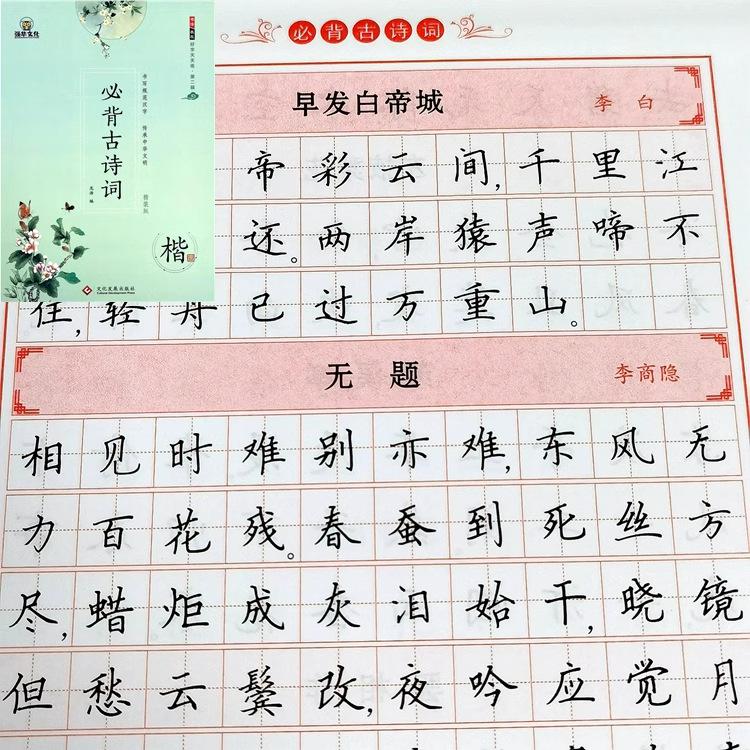 必背古诗词
书写规范汉字 传承中华文明
楷
文化发展出版社
Cultural Development Press
必背古诗词
早发白帝城 李白
帝彩云间,千里江
还。两岸猿声啼不
住,轻舟已过万重山。
无题 李商隐
相见时难别亦难,东风无
力百花残。春蚕到死丝方
尽,蜡炬成灰泪始干,晓镜
但愁云鬓改,夜吟应觉月